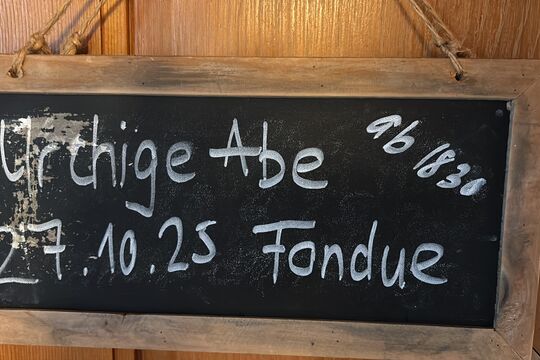 Urchige Abe
ab 1830
27.10.25 Fondue